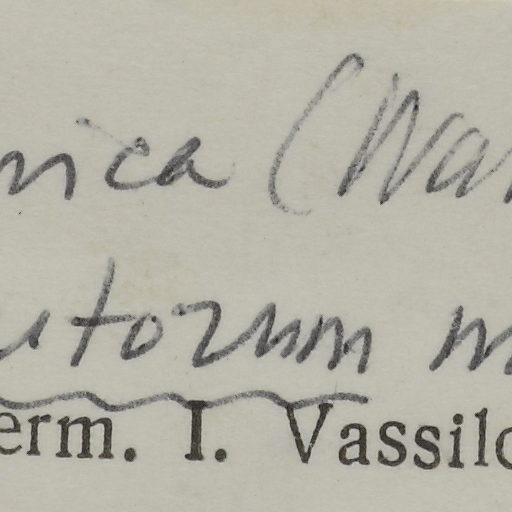 nica (War
utorum m
erm. I. Vassilc